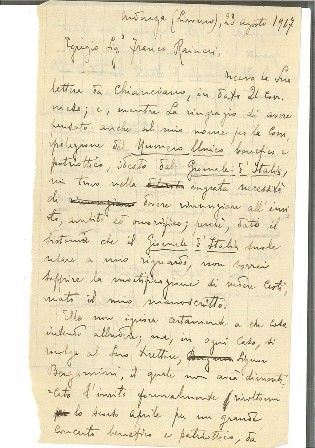 (Livorno), 23 agosto 1917
Egregio Sig.
ricevo la Sua
lettera da Chianciano, in data 21 cor-
rente; e, mentre La ringrazio di avere
pensato anche al mio nome per la Com-
pilazione del Numero Unico benefico e
patriottico, ideato dal Giornale d'Italia,
mi trovo nella ingrata necessità
di dovere rinunziare all'invi-
to, ambito ed onorifico; poiché, dato il
sistema che il Giornale d'Italia suole
usare a mio riguardo, non vorrei
soffrire la mortificazione di vedere cesti-
nato il mio manoscritto.
Ella non ignora certamente a che cosa
intendo alludere; ma, in ogni caso, si
rivolga al Suo Direttore,
Bergamini, il quale non avrà dimenti-
cato l'invito formalmente rivoltomi
lo scorso Aprile per un grande
Concerto benefico e patriottico, da